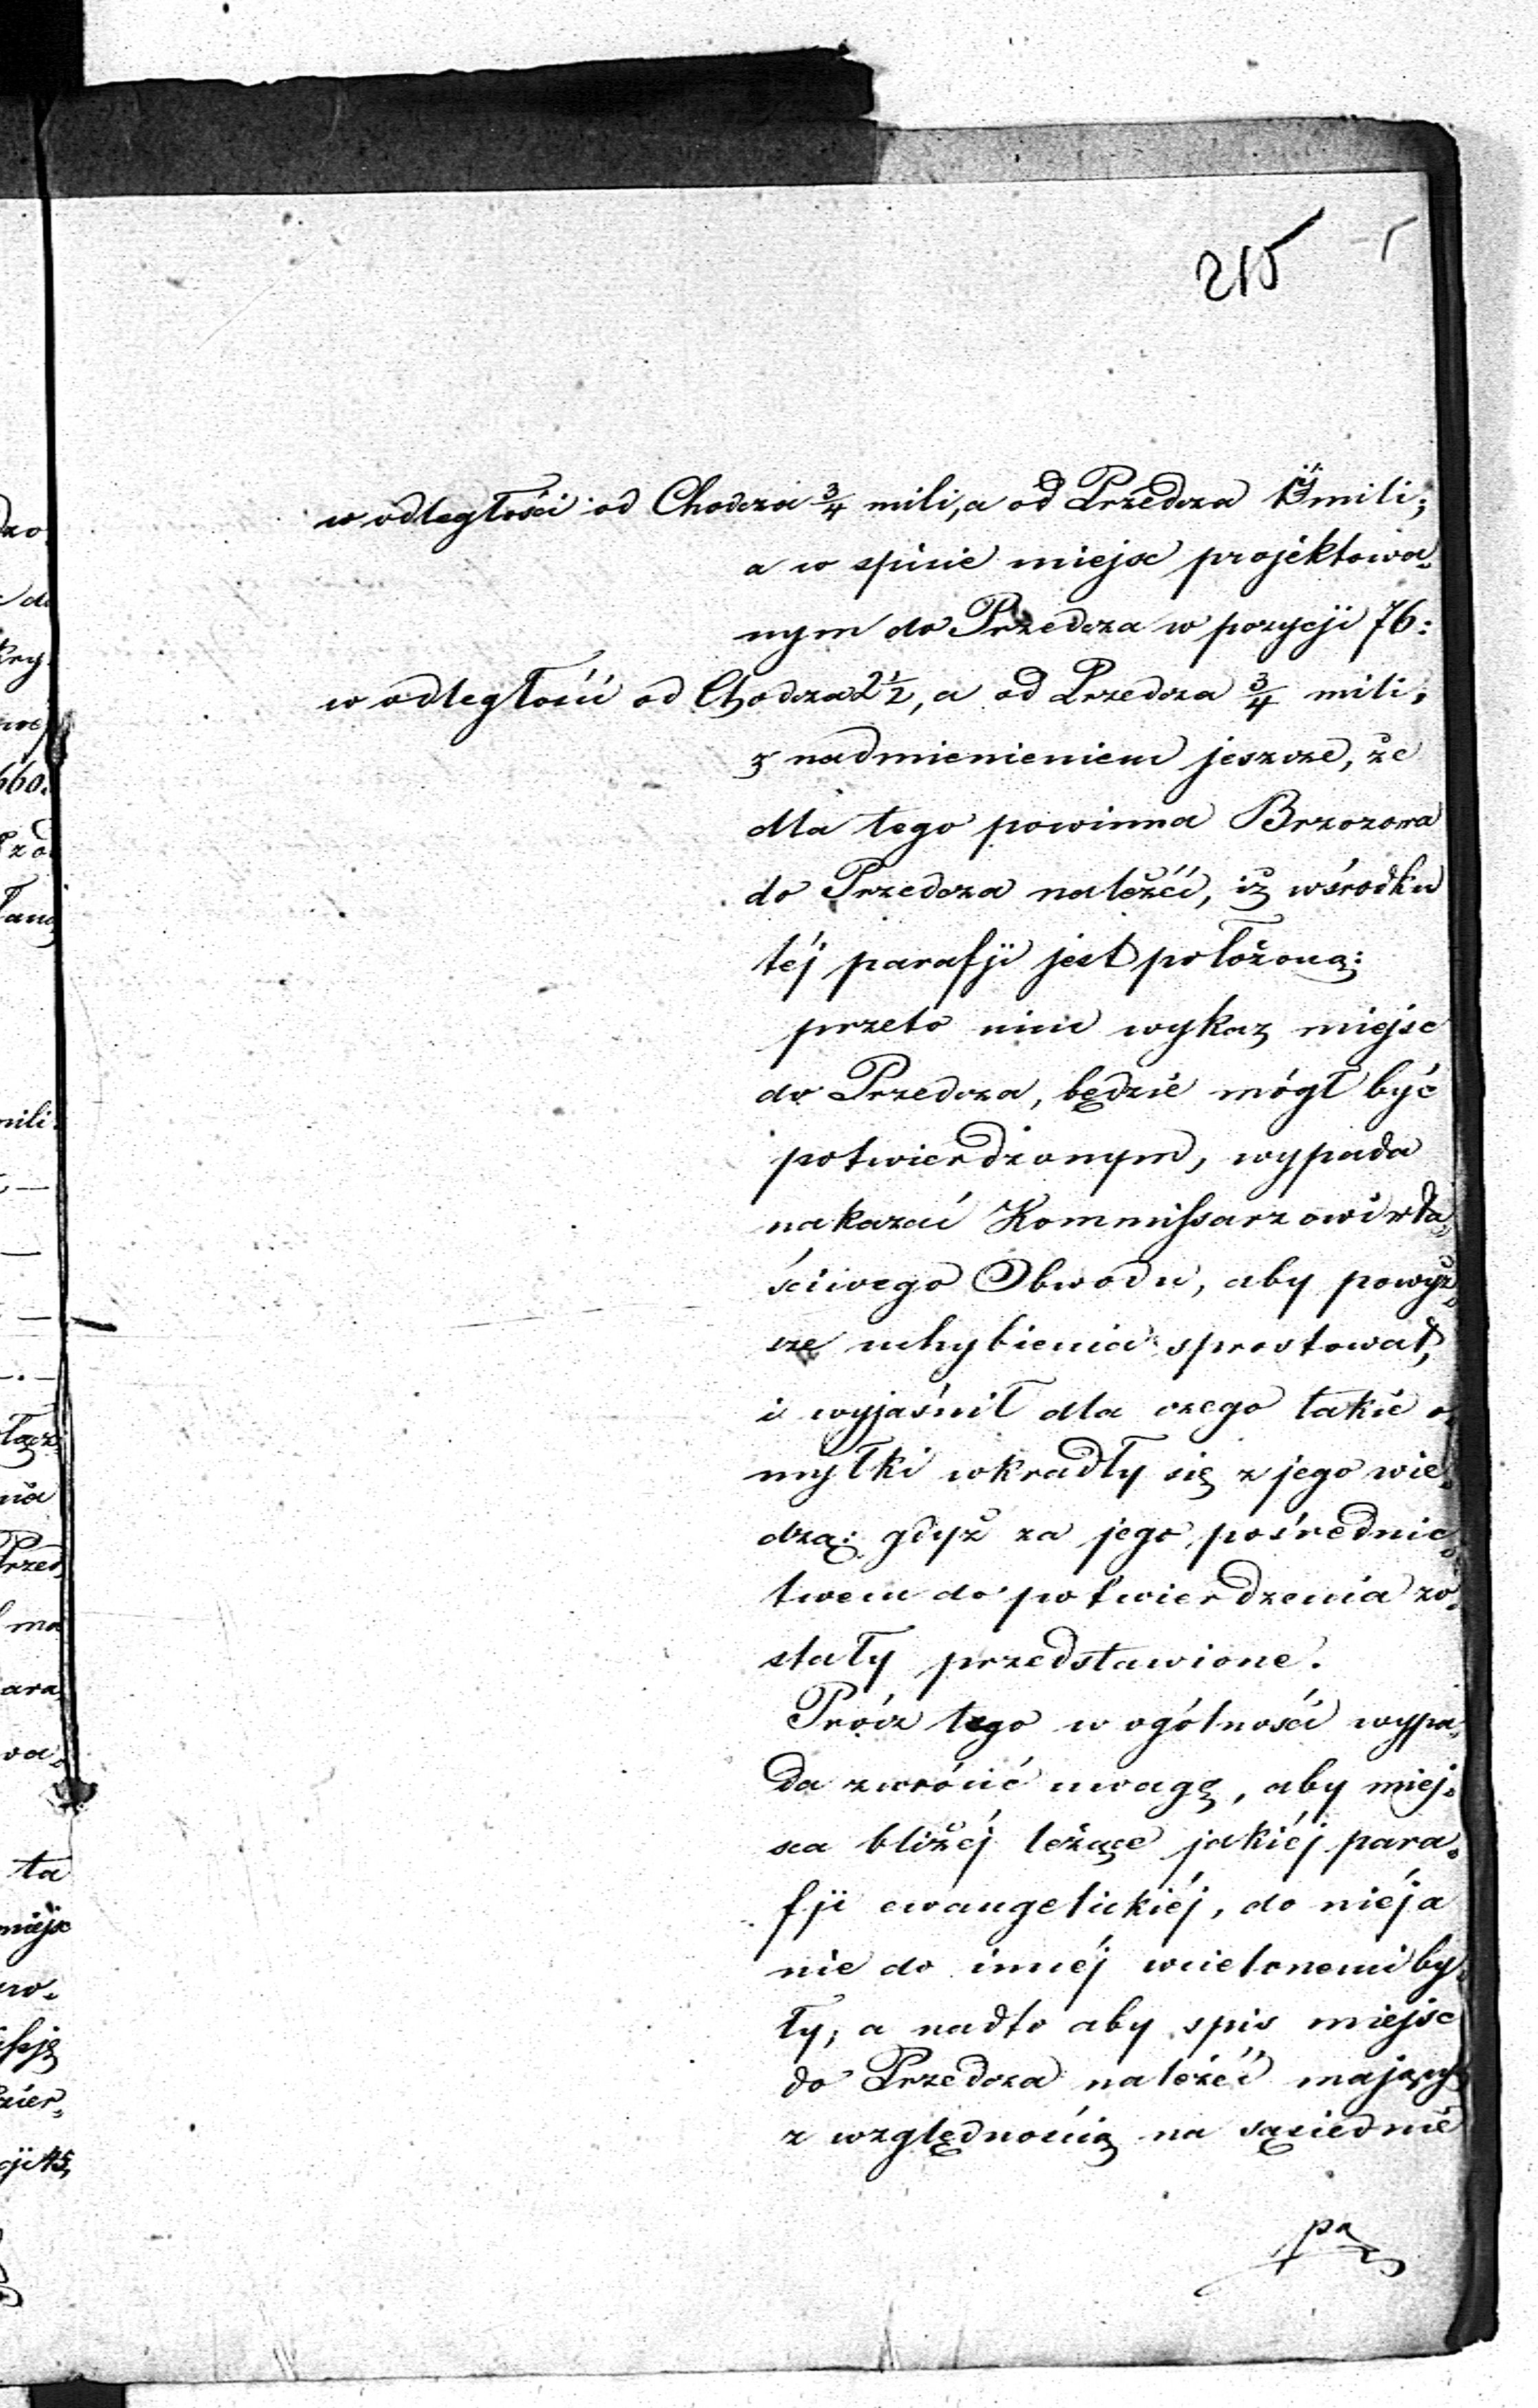 215
w odległości od Chodcza 3/4 mili, a od Przedcza mili;
a w spisie miejsc projektowa„
nym do Przedcza w pozycji 76:
w odległości od Chodcza 2 1/2, a od Przedcza 3/4 mili,
z nadmienieniem jeszcze, że
dla tego powinna Brzozowa
do Przedcza należéć, iż wśrodku
téj parafji jest położoną:
przeto nim wykaz miejsc
do Przedcza, będzie mógł być
potwierdzonym, wypada
nakazać Kommissarzowi wła„
ściwego Obwodu, aby powyż„
sze uchybienia sprostował,
i wyjaśnił dla czego takie o„
myłki wkradły się z jego wie„
dzą: gdyż za jego pośrednic„
twem do potwierdzenia zo„
stały przedstawione.
Prócz tego w ogólności wypa„
da zwrócić uwagę, aby miej„
sca bliżéj leżące jakiéj para„
fji ewangelickiéj, do niéj a
nie do innéj wcielonemi by„
ły; a nadto aby spis miejsc
do Przedcza należéć mających
z względnością na sąsiednie
pa